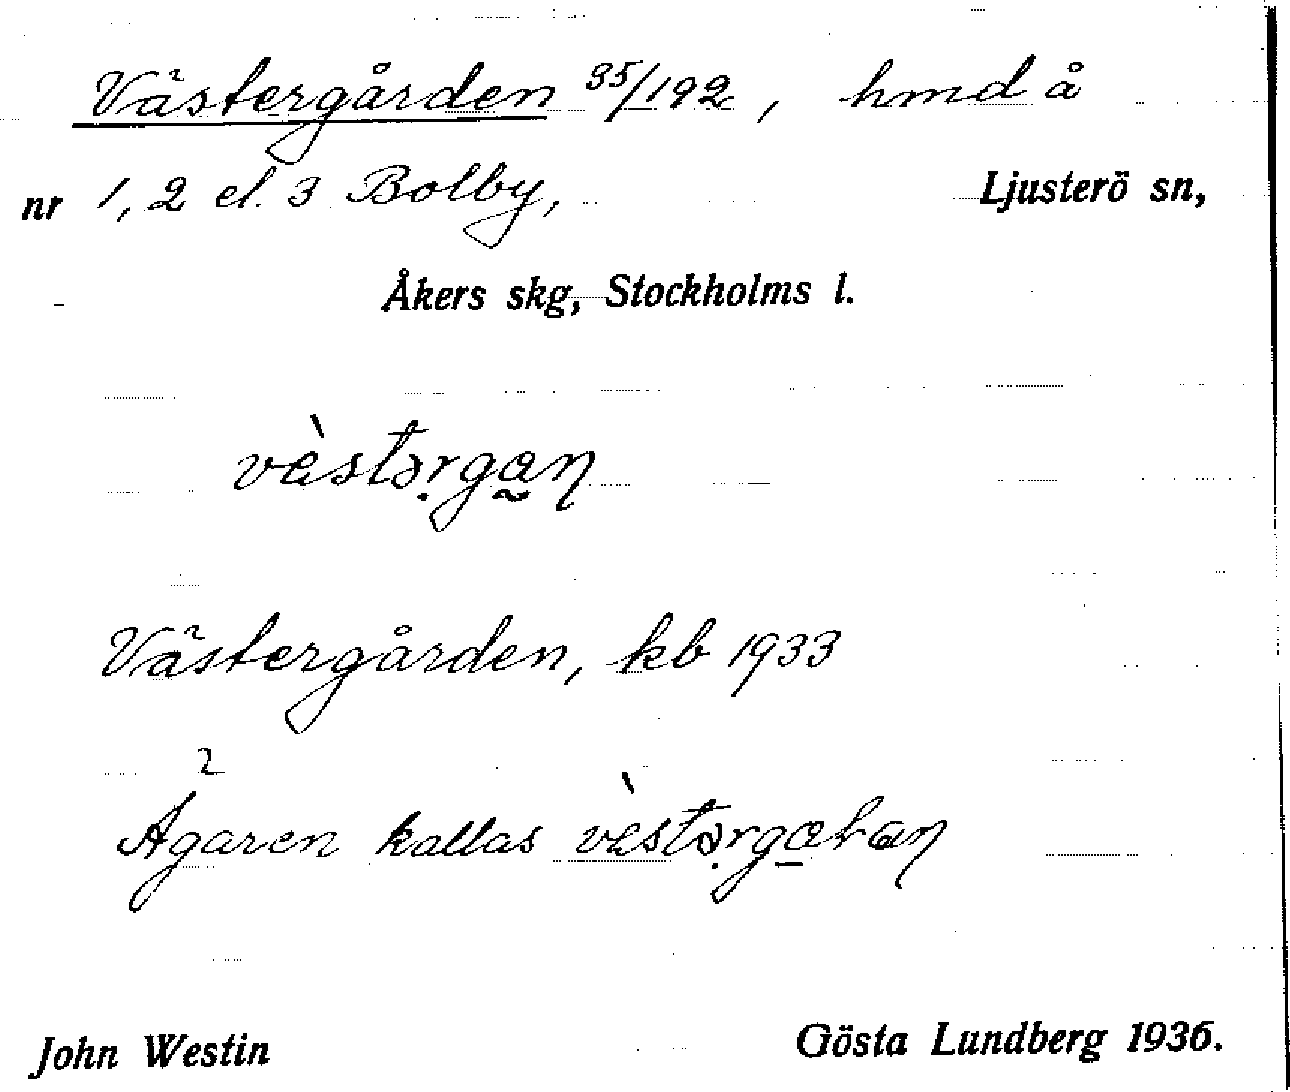 Västergården 35/192, hmd å
nr 1, 2 el. 3 Bolby, Ljusterö sn,
Åkers skg, Stockholms l.
Västergården, kb 1933
Ägaren kallas
John Westin
Gösta Lundberg 1936.